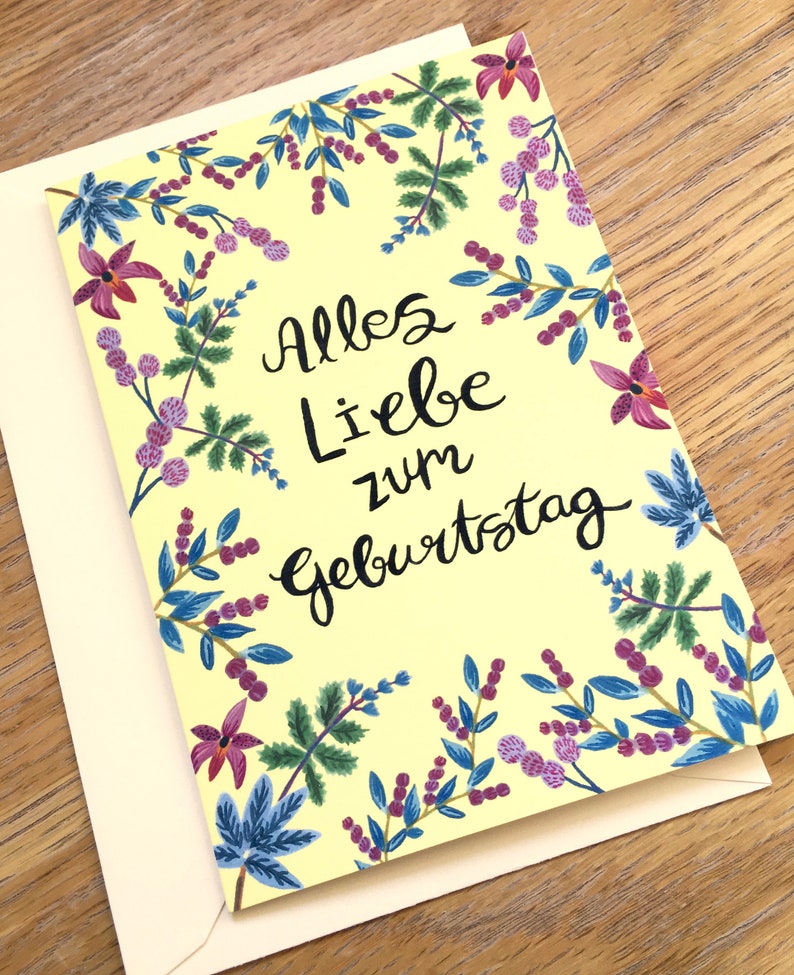 Alles
Liebe
zum
Geburtstag